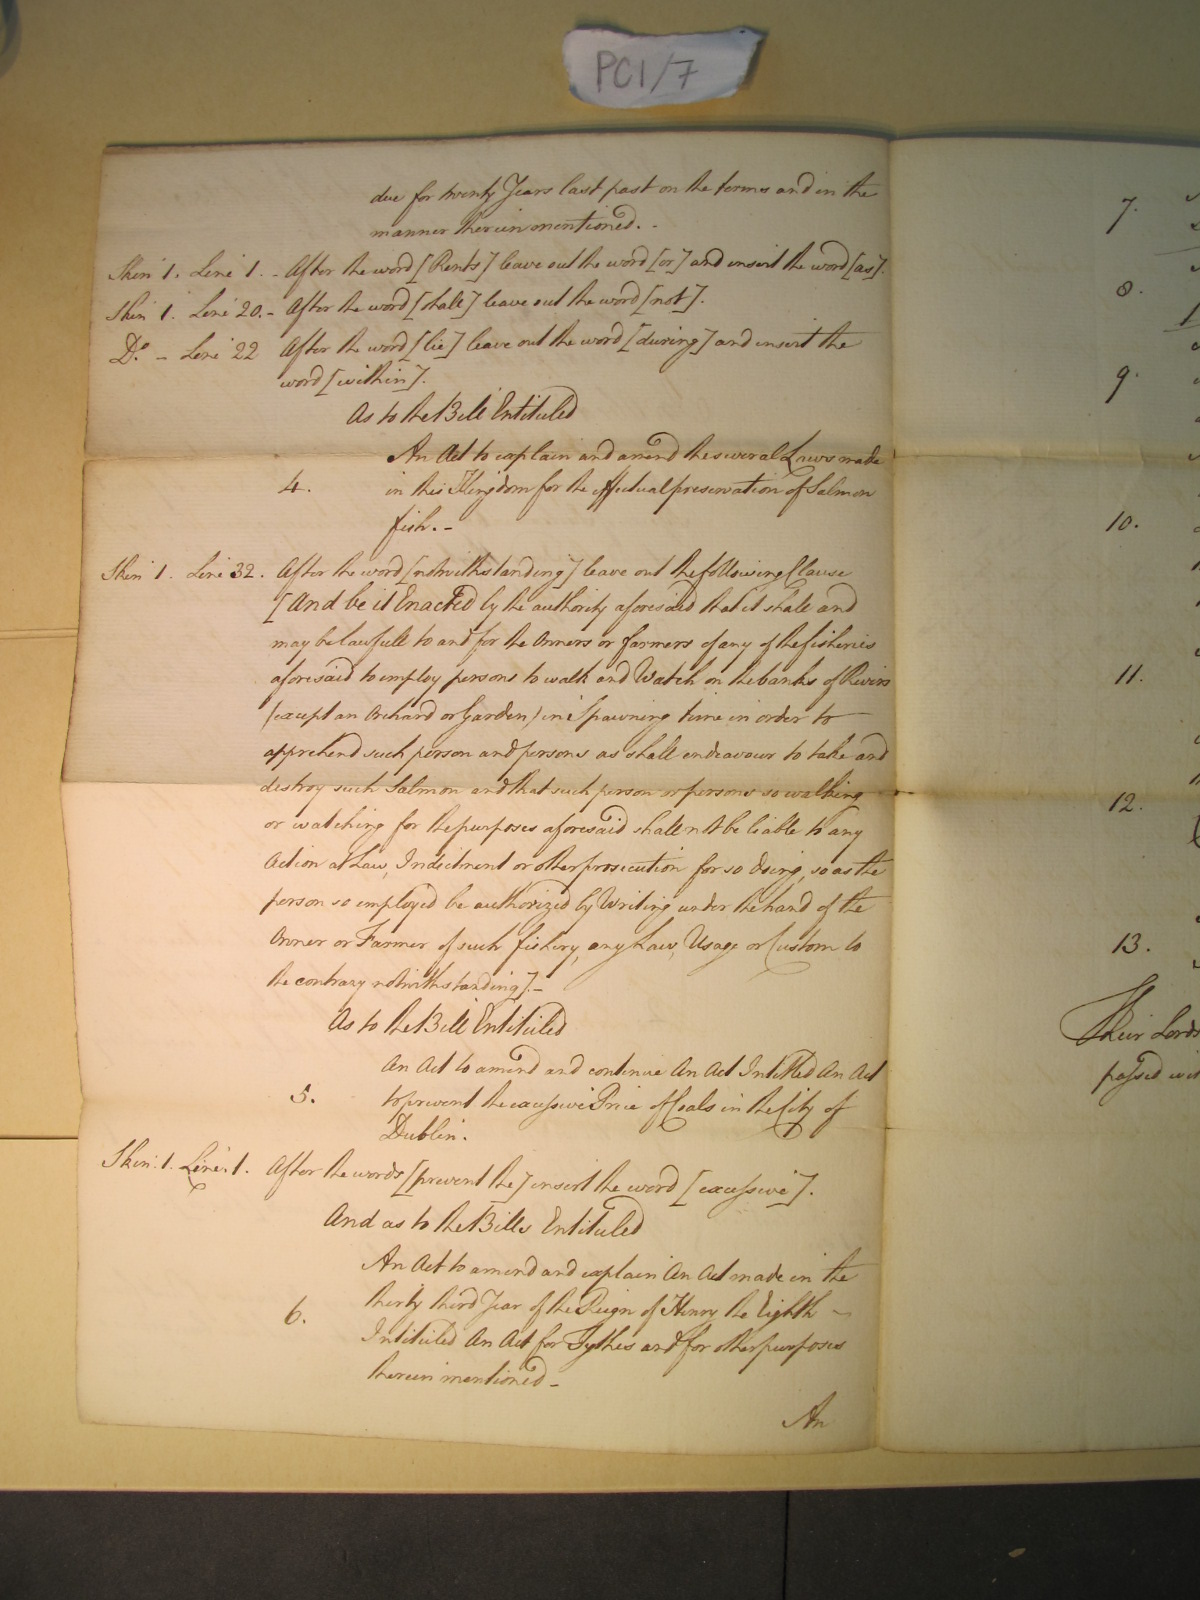 PC1/7
due for twenty Years last past on the terms and in the
manner therein mentioned. -
Skin 1. Line 1. - After the word [Rents] leave out the word [or] and insert the word [as].
Skin 1. Line 20. - After the word [shall] leave out the word [not].
Do. - Line 22 After the word [lie] leave out the word [during] and insert the
word [within].
As to the Bill Entituled
An Act to explain and amend the several Laws made
4. in this Kingdom for the effectual preservation of Salmon
fish. -
Skin 1. Line 32. After the word [notwithstanding] leave out the following Clause
[And be it Enacted by the authority aforesaid that it shall and
may be lawfull to and for the Owners or farmers of any of the fisheries
aforesaid to employ persons to walk and Watch on the banks of Rivers
(except an Orchard or Garden) in Spawning time in order to
apprehend such person and persons as shall endeavour to take and
destroy such Salmon and that such person or persons so walking
or watching for the purposes aforesaid shall not be liable to any
Action at Law, Indictment or other prosecution for so doing, so as the
person so employed be authorized by Writing under the hand of the
Owner or Farmer of such fishery, any Law, Usage or Custom to
the contrary notwithstanding]. -
As to the Bill Entituled
An Act to amend and continue An Act Intitled An Act
5. to prevent the excessive Price of Coals in the City of
Dublin.
Skin: 1. Line: 1. After the words [prevent the] insert the word [excessive].
And as to the Bills Entituled
An Act to amend and explain An Act made in the
thirty third Year of the Reign of Henry the Eighth
6. Intituled An Act for Tythes and for other purposes
therein mentioned -
An
7.
8.
9.
10.
11.
12.
13.
Their Lords
passed wit